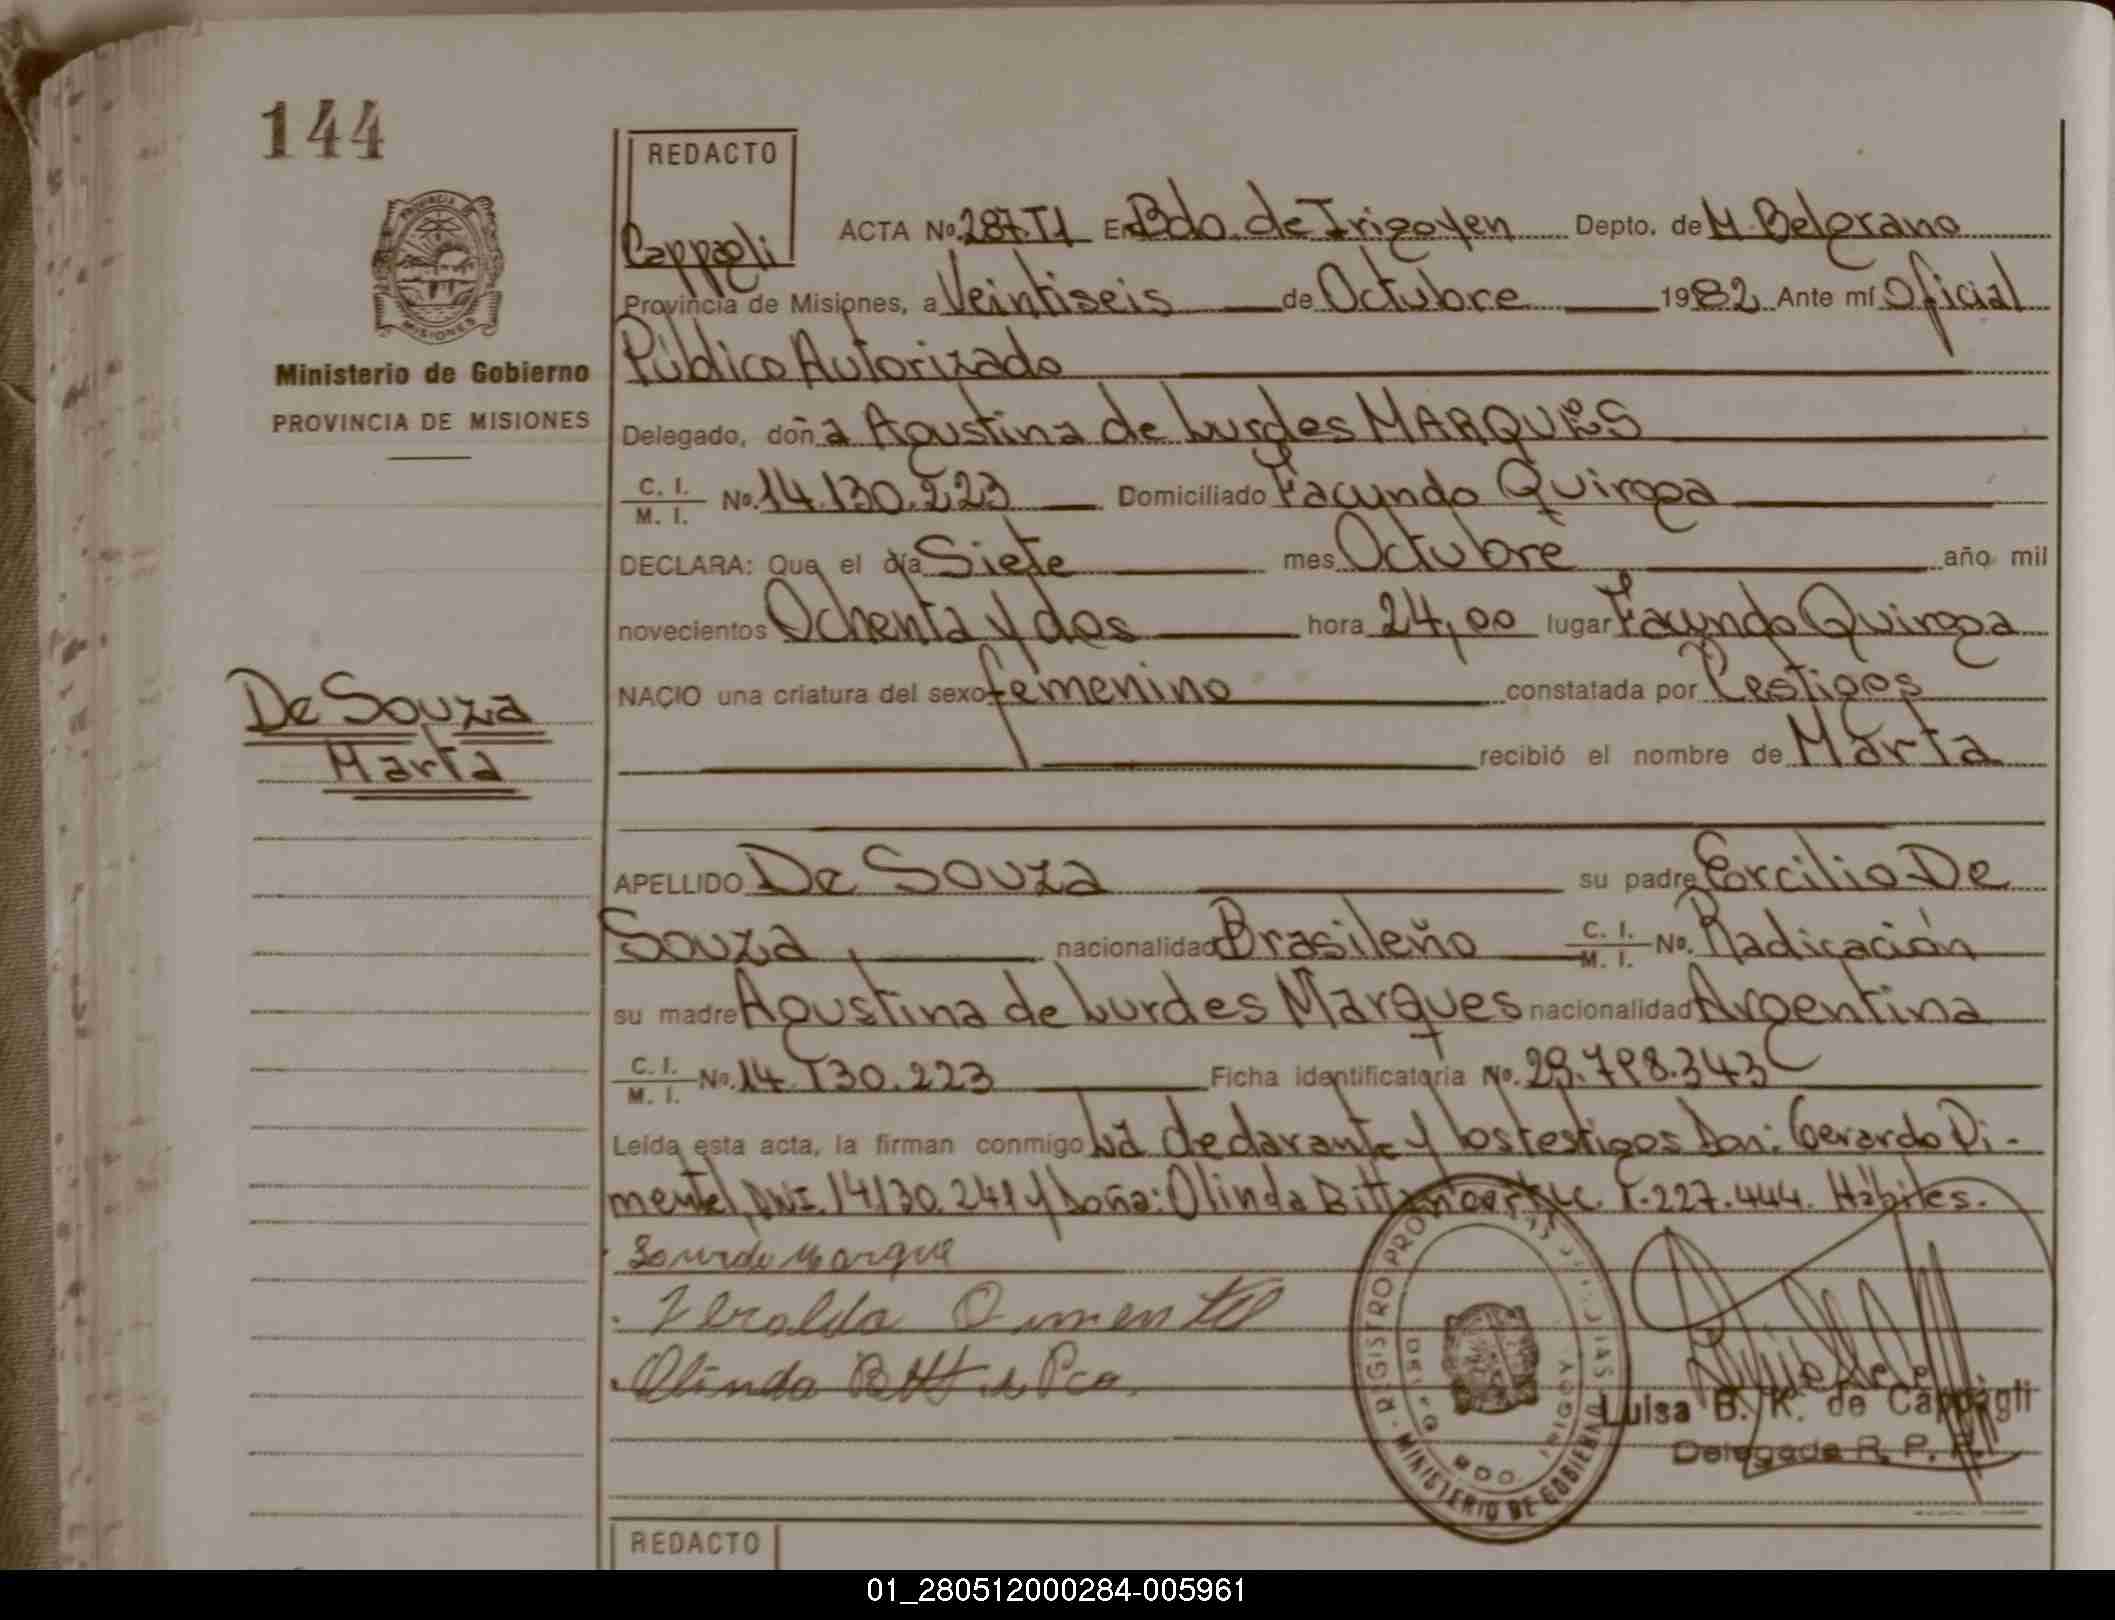 144
REDACTO
Cappagli
ACTA No. 287.T1 En Bdo. de Irigoyen Depto. de M. Belgrano
Provincia de Misiones, a Veintiseis de Octubre 1982 Ante mí Oficial
Público Autorizado
MISIONES
Ministerio de Gobierno
PROVINCIA DE MISIONES
Delegado, doña Agustina de Lurdes MARQUES
C. I. / M. I. No. 14.130.223 Domiciliado Facundo Quiroga
DECLARA: Que el día Siete mes Octubre año mil
novecientos Ochenta y dos hora 24,00 lugar Facundo Quiroga
NACIO una criatura del sexo femenino constatada por Testigos
De Souza
Marta
recibió el nombre de Marta
APELLIDO De Souza su padre Ercilio De
Souza, nacionalidad Brasileño C. I. / M. I. No. Radicación
su madre Agustina de Lurdes Marques nacionalidad Argentina
C. I. / M. I. No. 14.130.223 Ficha identificatoria No. 29.798.343
Leída esta acta, la firman conmigo La declarante y los testigos Don: Gerardo Pi-
mentel, DNI. 14130.241 y Doña: Olinda L.C. 227.444. Hábiles.
Olinda
REGISTRO MINISTERIO DE GOBIERNO
BDO. IRIGOY
Luisa B. K. de Cappagli
Delegada R. P. P.
REDACTO
01_280512000284-005961